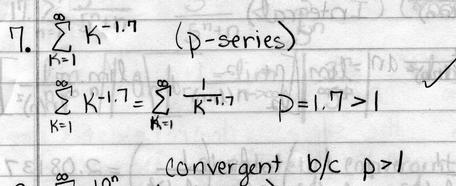 7. ∞∑K=1 K^-1.7 (p-series)
∞∑K=1 K^-1.7 = ∞∑K=1 1/K^-1.7 p=1.7>1
convergent b/c p>1